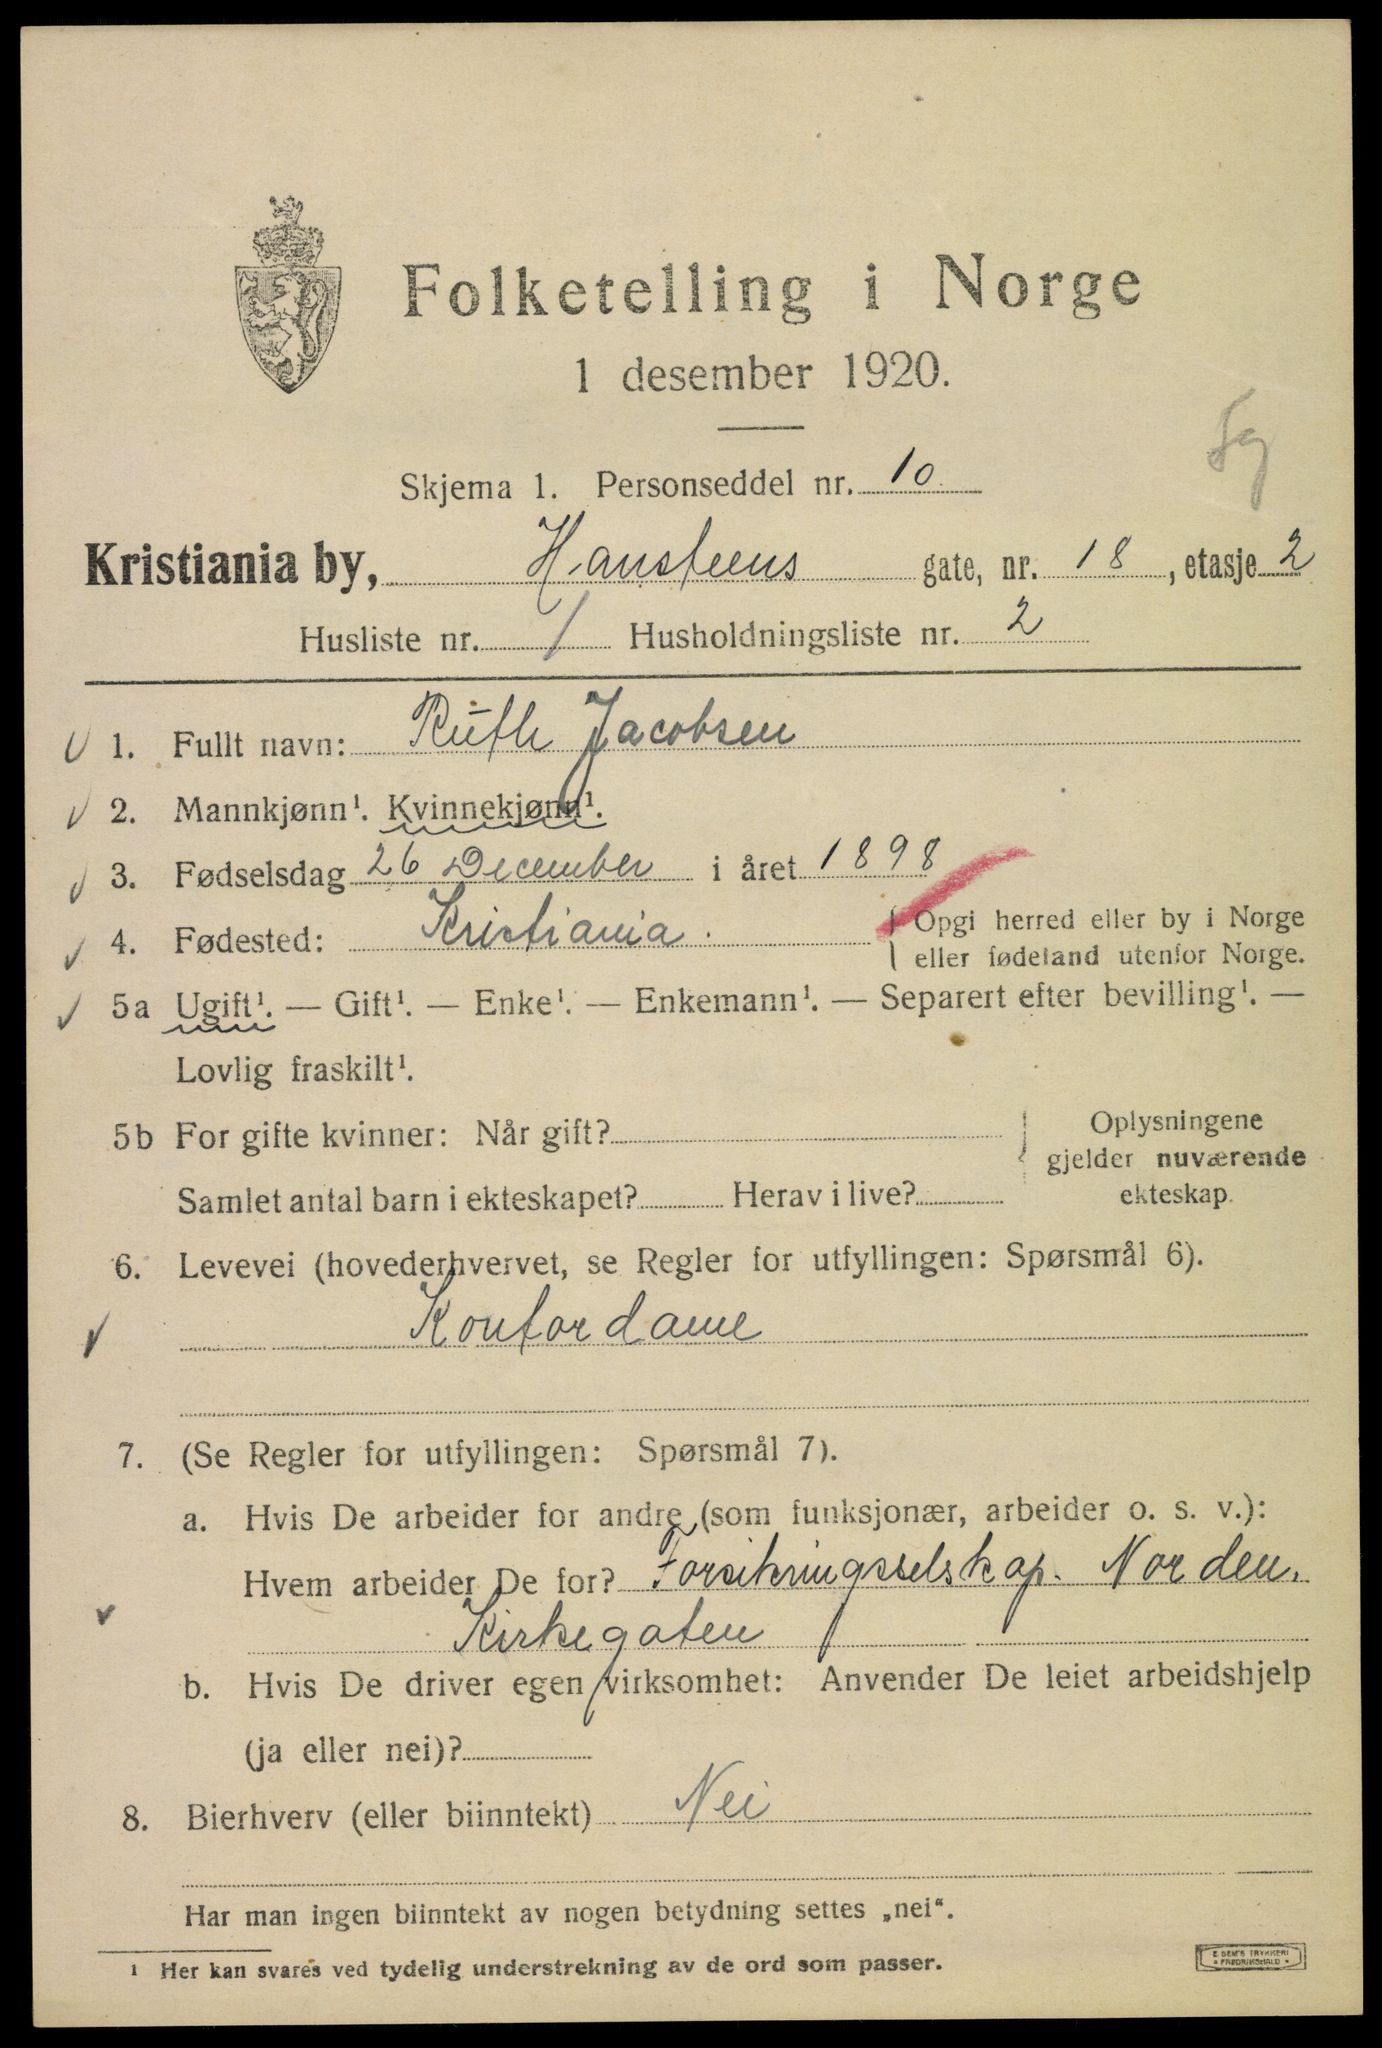 Folketelling i Norge
1 desember 1920.
Skjema 1. Personseddel nr. 10
Kristiania by, Hansteens gate, nr. 18, etasje 2
Husliste nr. 1 Husholdningsliste nr. 2
1. Fullt navn: Ruth Jacobsen
2. Mannkjønn¹. Kvinnekjønn¹.
3. Fødselsdag 26 December i året 1898
4. Fødested: Kristiania. { Opgi herred eller by i Norge
eller fødeland utenfor Norge.
5a Ugift¹. — Gift¹. — Enke¹. — Enkemann¹. — Separert efter bevilling¹. —
Lovlig fraskilt¹.
5b For gifte kvinner: Når gift?
Samlet antal barn i ekteskapet? Herav i live?
{ Oplysningene
gjelder nuværende
ekteskap.
6. Levevei (hovederhvervet, se Regler for utfyllingen: Spørsmål 6).
Kontordame
7. (Se Regler for utfyllingen: Spørsmål 7).
a. Hvis De arbeider for andre (som funksjonær, arbeider o. s. v.):
Hvem arbeider De for? Forsikringsselskap. Norden.
Kirkegaten
b. Hvis De driver egen virksomhet: Anvender De leiet arbeidshjelp
(ja eller nei)?
8. Bierhverv (eller biinntekt) Nei
Har man ingen biinntekt av nogen betydning settes „nei“.
¹ Her kan svares ved tydelig understrekning av de ord som passer.
E SEM'S TRYKKERI
FREDRIKSHALD